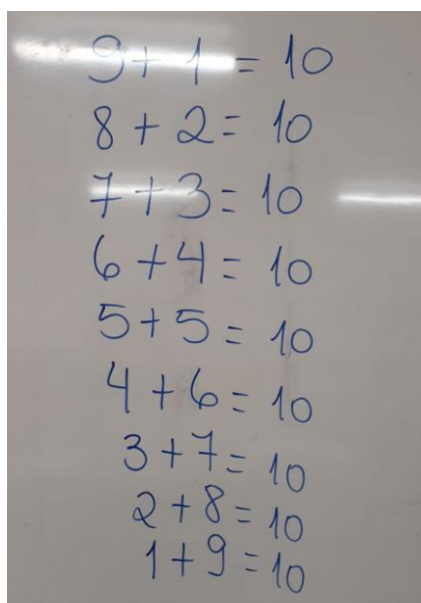 9 + 1 = 10
8 + 2 = 10
7 + 3 = 10
6 + 4 = 10
5 + 5 = 10
4 + 6 = 10
3 + 7 = 10
2 + 8 = 10
1 + 9 = 10